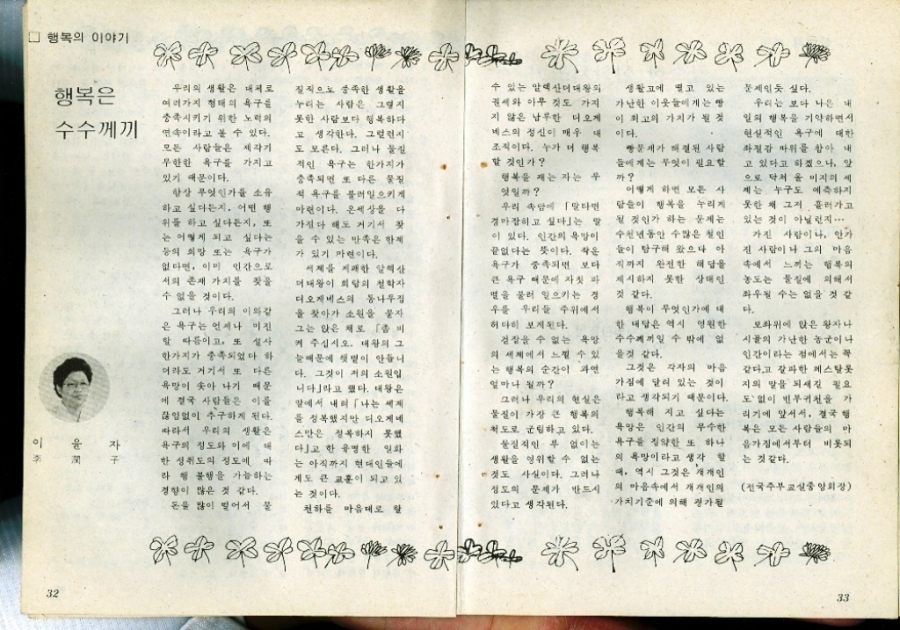 □ 행복의 이야기
행복은
수수께끼
이 윤 자
李 潤 子
우리의 생활은 대체로
여러가지 형태의 욕구를
충족시키기 위한 노력의
연속이라고 볼 수 있다.
모든 사람들은 제각기
무한한 욕구를 가지고
있기 때문이다.
항상 무엇인가를 소유
하고 싶다든지, 어떤 행
위를 하고 싶다든지, 또
는 어떻게 되고 싶다는
등의 희망 또는 욕구가
없다면, 이미 인간으로
서의 존재 가치를 찾을
수 없을 것이다.
그러나 우리의 이와같
은 욕구는 언제나 미진
할 따름이고, 또 설사
한가지가 충족되었다 하
더라도 거기서 또 다른
욕망이 솟아 나기 때문
에 결국 사람들은 이를
끊임없이 추구하게 된다.
따라서 우리의 생활은
욕구의 정도와 이에 대
한 성취도의 정도에 따
라 행 불행을 가늠하는
경향이 많은 것 같다.
돈을 많이 벌어서 물
질적으로 풍족한 생활을
누리는 사람은 그렇지
못한 사람보다 행복하다
고 생각한다. 그럴런지
도 모른다. 그러나 물질
적인 욕구는 한가지가
충족되면 또 다른 물질
적 욕구를 불러일으키게
마련이다. 온세상을 다
가진다 해도 거기서 찾
을 수 있는 만족은 한계
가 있기 마련이다.
세계를 제패한 알렉산
더대왕이 희랍의 철학자
디오게네스의 통나무집
을 찾아가 소원을 묻자
그는 앉은 채로 「좀 비
켜 주십시오. 대왕의 그
늘때문에 햇볕이 안듭니
다. 그것이 저의 소원입
니다」라고 했다. 대왕은
말에서 내려 「나는 세계
를 정복했지만 디오게네
스만은 정복하지 못했
다」고 한 유명한 일화
는 아직까지 현대인들에
게도 큰 교훈이 되고 있
는 것이다.
천하를 마음대로 할
수 있는 알렉산더대왕의
권세와 아무 것도 가지
지 않은 남루한 디오게
네스의 정신이 매우 대
조적이다. 누가 더 행복
할 것인가?
행복을 재는 자는 무
엇일까?
우리 속담에 「말타면
경마잡히고 싶다」는 말
이 있다. 인간의 욕망이
끝없다는 뜻이다. 작은
욕구가 충족되면 보다
큰 욕구 때문에 자칫 파
멸을 불러 일으키는 경
우를 우리들 주위에서
허다히 보게된다.
걷잡을 수 없는 욕망
의 세계에서 느낄 수 있
는 행복의 순간이 과연
얼마나 될까?
그러나 우리의 현실은
물질이 가장 큰 행복의
척도로 군림하고 있다.
물질적인 부 없이는
생활을 영위할 수 없는
것도 사실이다. 그러나
정도의 문제가 반드시
있다고 생각된다.
생활고에 떨고 있는
가난한 이웃들에게는 빵
이 최고의 가치가 될 것
이다.
빵문제가 해결된 사람
들에게는 무엇이 필요할
까?
어떻게 하면 모든 사
람들이 행복을 누리게
될 것인가 하는 문제는
수천년동안 수많은 철인
들이 탐구해 왔으나 아
직까지 완전한 해답을
제시하지 못한 상태인
것 같다.
행복이 무엇인가에 대
한 대답은 역시 영원한
수수께끼일 수 밖에 없
을것 같다.
그것은 각자의 마음
가짐에 달려 있는 것이
라고 생각되기 때문이다.
행복해 지고 싶다는
욕망은 인간의 무수한
욕구를 집약한 또 하나
의 욕망이라고 생각 할
때, 역시 그것은 개개인
의 마음속에서 개개인의
가치기준에 의해 평가될
문제인듯 싶다.
우리는 보다 나은 내
일의 행복을 기약하면서
현실적인 욕구에 대한
좌절감 따위를 참아 내
고 있다고 하겠으나, 앞
으로 닥쳐 올 미지의 세
계는 누구도 예측하지
못한 채 그저 흘러가고
있는 것이 아닐런지…
가진 사람이나, 안가
진 사람이나 그의 마음
속에서 느끼는 행복의
농도는 물질에 의해서
좌우될 수는 없을 것 같
다.
보좌위에 앉은 왕자나
시골의 가난한 농군이나
인간이라는 점에서는 똑
같다고 갈파한 페스탈롯
지의 말을 되새길 필요
도 없이 빈부귀천을 가
리기에 앞서서, 결국 행
복은 모든 사람들의 마
음가짐에서부터 비롯되
는 것같다.
(전국주부교실중앙회장)
32
33